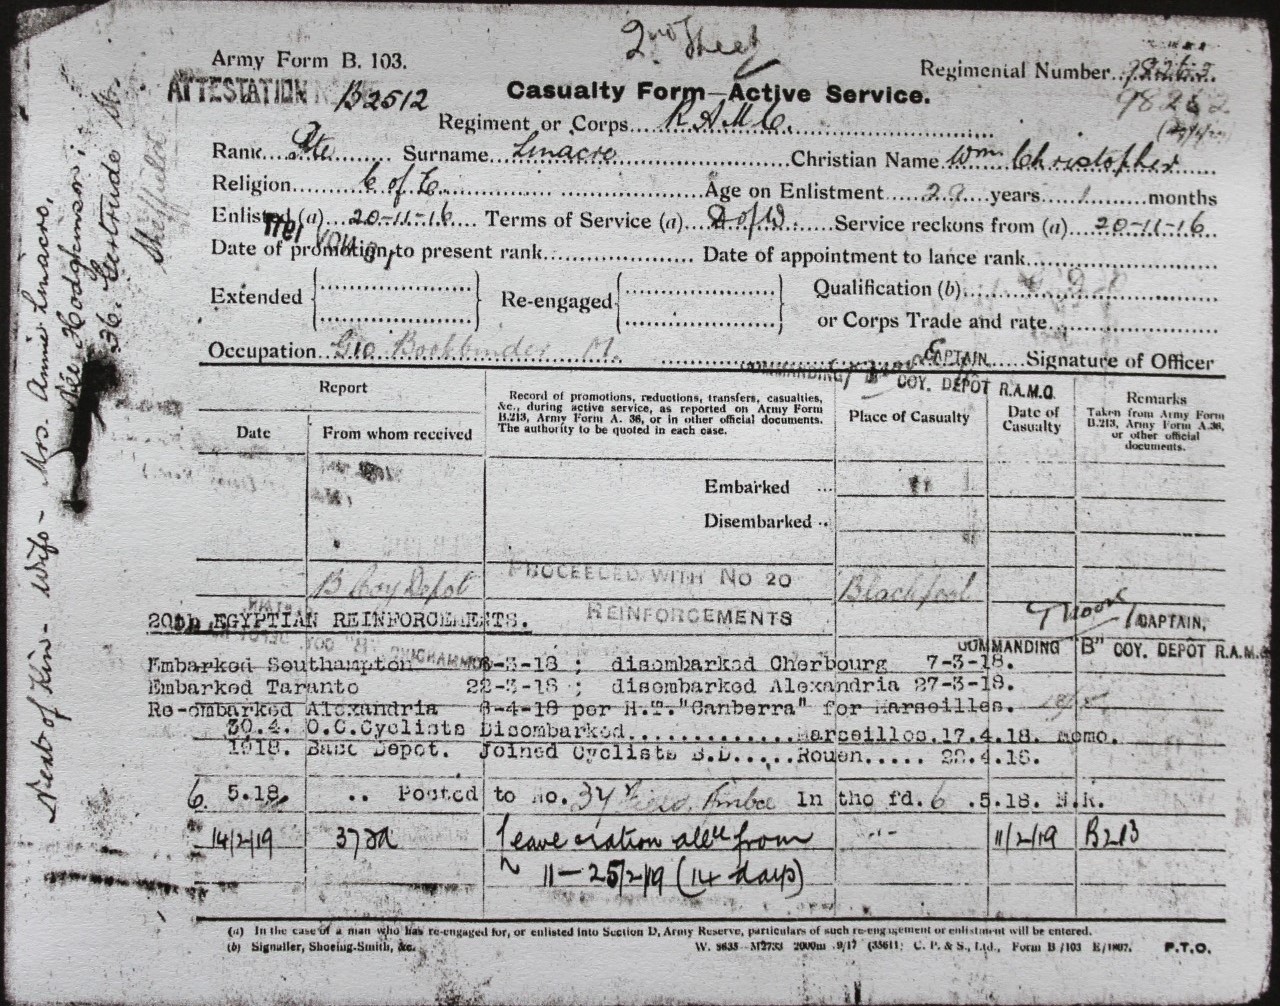 2nd Sheet
Army Form B. 103.
Regimental Number
98262
ATTESTATION B2512
Casualty Form—Active Service.
Regiment or Corps R A M C.
Rank Pte Surname Linacre Christian Name Wm Christopher
Religion C of E Age on Enlistment 29 years 1 months
Enlisted (a) 20-11-16 Terms of Service (a) D of W Service reckons from (a) 20-11-16
Date of promotion to present rank Date of appointment to lance rank
Extended Re-engaged Qualification (b)
or Corps Trade and rate
Occupation Bookbinder CAPTAIN Signature of Officer
COMMANDING "B" COY. DEPOT R.A.M.C.
Report
Date
From whom received
Record of promotions, reductions, transfers, casualties,
&c., during active service, as reported on Army Form
B.213, Army Form A. 36, or in other official documents.
The authority to be quoted in each case.
Place of Casualty
Date of
Casualty
Remarks
Taken from Army Form
B.213, Army Form A.36,
or other official
documents.
Embarked
Disembarked
B Coy Depot PROCEEDED WITH No 20 Blackpool
REINFORCEMENTS
20th EGYPTIAN REINFORCEMENTS.
Moore CAPTAIN,
COMMANDING "B" COY. DEPOT R.A.M.C
Embarked Southampton 6-3-18 ; disembarked Cherbourg 7-3-18.
Embarked Taranto 22-3-18 ; disembarked Alexandria 27-3-18.
Re-embarked Alexandria 8-4-18 per H.T."Canberra" for Marseilles.
30.4. O.C.Cyclists Disembarked.............Marseilles.17.4.18. memo.
1918. Base Depot. Joined Cyclists B.D.....Rouen..... 22.4.18.
6. 5.18. .. Posted to No. 37 Field Ambce In the fd. 6 .5.18. N.R.
14/2/19 37 FA Leave ration allce from 11/2/19 B213
11 – 25/2/19 (14 days)
(a) In the case of a man who has re-engaged for, or enlisted into Section D, Army Reserve, particulars of such re-engagement or enlistment will be entered.
(b) Signaller, Shoeing-Smith, &c.
W. 5635—M2733 2000m 9/17 (35611) C. P. & S., Ltd., Form B/103 E/1807. P.T.O.
Next of Kin - Wife - Mrs. Annie Linacre,
née Hodghinson;
36. Gertrude St.
Sheffield